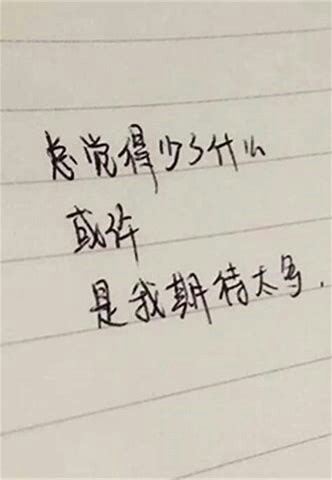 总觉得少了什么
或许
是我期待太多.